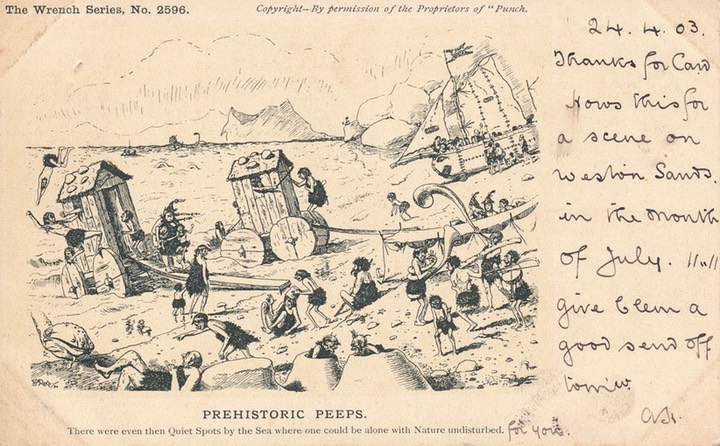 The Wrench Series, No. 2596.
Copyright—By permission of the Proprietors of "Punch.
24.4.03.
Thanks for Card
Hows this for
a scene on
Weston Sands.
in the month
of July. 11.11
give Clem a
good send off
PREHISTORIC PEEPS.
There were even then Quiet Spots by the Sea where one could be alone with Nature undisturbed. for you.